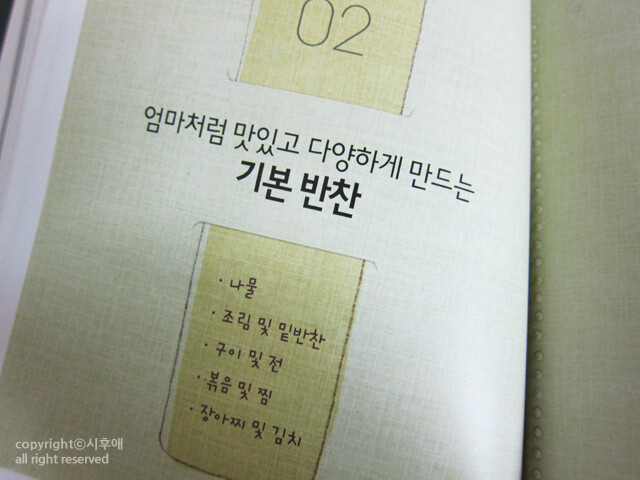 02
엄마처럼 맛있고 다양하게 만드는
기본 반찬
· 나물
· 조림 및 밑반찬
· 구이 및 전
· 볶음 및 찜
· 장아찌 및 김치
copyrightⓒ시후애
all right reserved